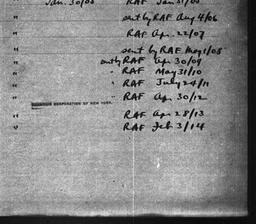 Jan. 30/05 RAF Jan 31/05
" sent by RAF Aug 4/06
" RAF Apr. 22/07
" sent by RAF May 1/08
" sent by RAF Apr. 30/09
" RAF May 31/10
" RAF July 24/11
" RAF Apr. 30/12
CORPORATION OF NEW YORK.
" RAF Apr 28/13
" RAF Feb 3/14